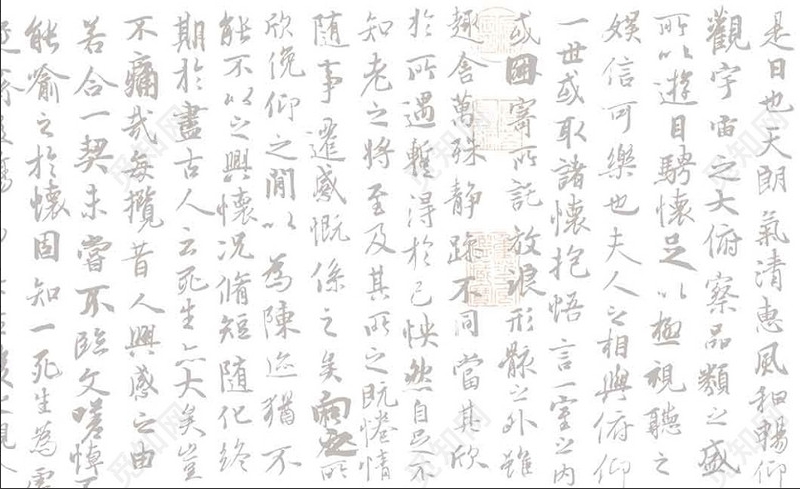 是日也天朗氣清惠風和暢仰
觀宇宙之大俯察品類之盛
所以遊目騁懷足以極視聽之
娛信可樂也夫人之相與俯仰
一世或取諸懷抱悟言一室之內
或因寄所託放浪形骸之外雖
趣舍萬殊靜躁不同當其欣
於所遇暫得於己怏然自足不
知老之將至及其所之既惓情
隨事遷感慨係之矣向之所
欣俛仰之間以為陳迹猶不
能不以之興懷況脩短隨化終
期於盡古人云死生亦大矣豈
不痛哉每攬昔人興感之由
若合一契未嘗不臨文嗟悼不
能喻之於懷固知一死生為虛
觅知网